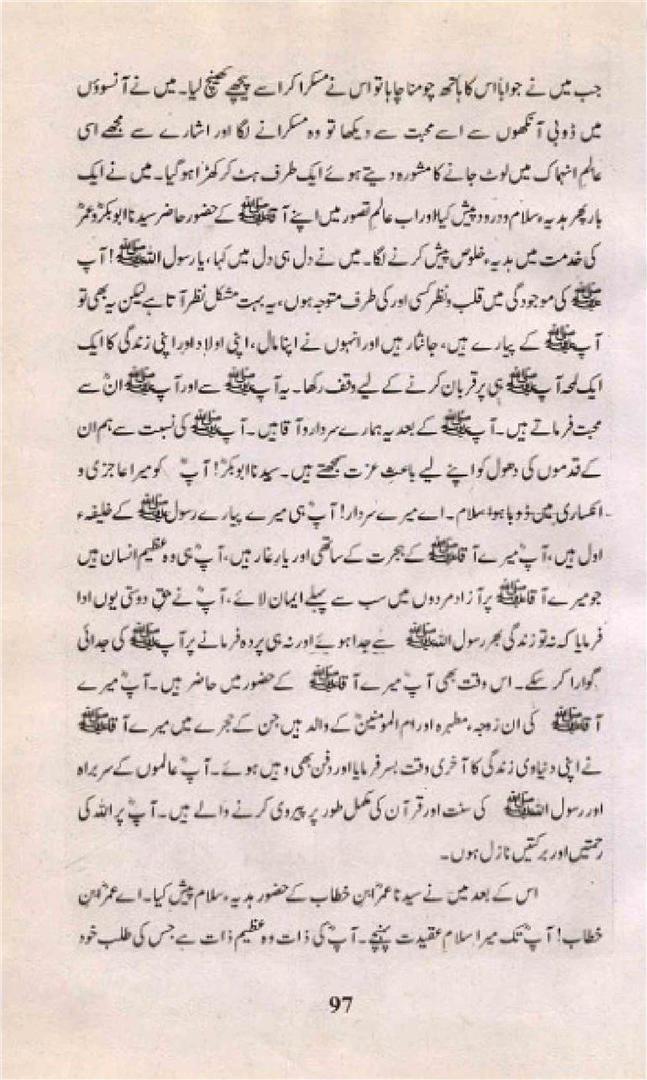 جب میں نے جواباً اس کا ہاتھ چومنا چاہا تو اس نے مسکرا کر اسے پیچھے کھینچ لیا۔ میں نے آنسوؤں
میں ڈوبی آنکھوں سے اسے محبت سے دیکھا تو وہ مسکرانے لگا اور اشارے سے مجھے اسی
عالمِ انہماک میں لوٹ جانے کا مشورہ دیتے ہوئے ایک طرف ہٹ کر کھڑا ہو گیا۔ میں نے ایک
بار پھر ہدیہء سلام و درود پیش کیا اور اب عالمِ تصور میں اپنے آقاﷺ کے حضور حاضر سیدنا ابوبکرؓ و عمرؓ
کی خدمت میں ہدیہء خلوص پیش کرنے لگا۔ میں نے دل ہی دل میں کہا، یا رسول اللہﷺ! آپ
ﷺ کی موجودگی میں قلب و نظر کسی اور کی طرف متوجہ ہوں، یہ بہت مشکل نظر آتا ہے لیکن یہ بھی تو
آپﷺ کے پیارے ہیں، جانثار ہیں اور انہوں نے اپنا مال، اپنی اولاد اور اپنی زندگی کا ایک
ایک لمحہ آپﷺ ہی پر قربان کرنے کے لیے وقف رکھا۔ یہ آپﷺ سے اور آپﷺ انؓ سے
محبت فرماتے ہیں۔ آپﷺ کے بعد یہ ہمارے سردار و آقا ہیں۔ آپﷺ کی نسبت سے ہم ان
کے قدموں کی دھول کو اپنے لیے باعثِ عزت سمجھتے ہیں۔ سیدنا ابوبکرؓ! آپؓ کو میرا عاجزی و
انکساری میں ڈوبا ہوا سلام۔ اے میرے سردار! آپؓ ہی میرے پیارے رسولﷺ کے خلیفہء
اول ہیں، آپؓ میرے آقاﷺ کے ہجرت کے ساتھی اور یارِ غار ہیں، آپؓ ہی وہ عظیم انسان ہیں
جو میرے آقاﷺ پر آزاد مردوں میں سب سے پہلے ایمان لائے، آپؓ نے حقِ دوستی یوں ادا
فرمایا کہ نہ تو زندگی بھر رسول اللہﷺ سے جدا ہوئے اور نہ ہی پردہ فرمانے پر آپﷺ کی جدائی
گوارا کر سکے۔ اس وقت بھی آپؓ میرے آقاﷺ کے حضور میں حاضر ہیں۔ آپؓ میرے
آقاﷺ کی ان زوجہء مطہرہ اور ام المومنینؓ کے والد ہیں جن کے حجرے میں میرے آقاﷺ
نے اپنی دنیاوی زندگی کا آخری وقت بسر فرمایا اور دفن بھی وہیں ہوئے۔ آپؓ عالموں کے سربراہ
اور رسول اللہﷺ کی سنت اور قرآن کی مکمل طور پر پیروی کرنے والے ہیں۔ آپؓ پر اللہ کی
رحمتیں اور برکتیں نازل ہوں۔
اس کے بعد میں نے سیدنا عمرؓ ابنِ خطاب کے حضور ہدیہء سلام پیش کیا۔ اے عمرؓ ابنِ
خطاب! آپؓ تک میرا سلامِ عقیدت پہنچے۔ آپؓ کی ذات وہ عظیم ذات ہے جس کی طلب خود
97